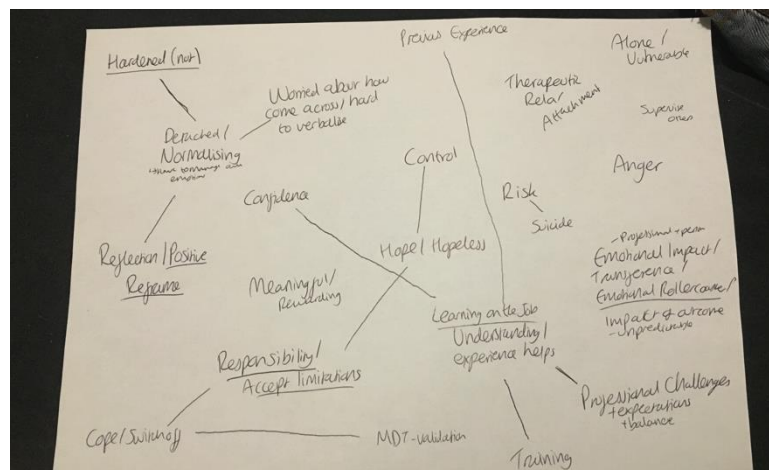 Hardened (not)
Previous Experience
Alone /
Vulnerable
Worried about how
come across/hard
to verbalise
Therapeutic
Rela/
Attachment
Detached/
Normalising
emotion
Supervise
others
Control
Anger
Confidence
Risk
Suicide
Hope/Hopeless
Reflection/Positive
Reframe
Meaningful/
Rewarding
-Professional + person
Emotional Impact/
Transference/
Emotional Rollercoaster/
Impact of outcome
-unpredictable
Learning on the Job
Understanding/
experience helps
Responsibility/
Accept limitations
Professional Challenges
+expectations
+balance
Cope/Switchoff
MDT-validation
Training